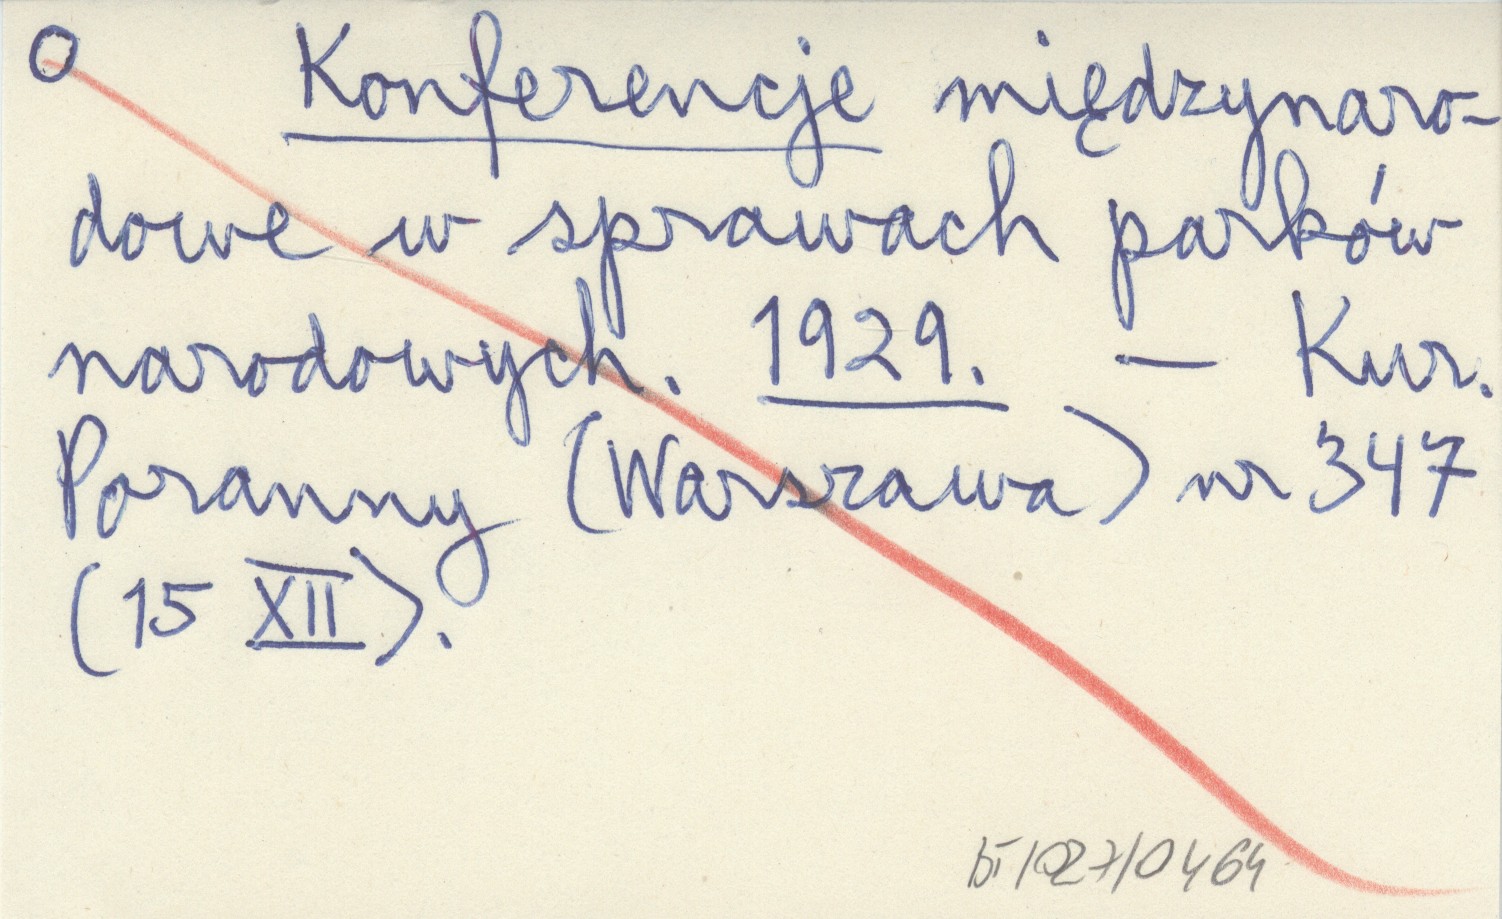 O Konferencje międzynaro-
dowe w sprawach parków
narodowych. 1929. — Kur.
Poranny (Warszawa) nr 347
(15 XII).
bī/027/0464